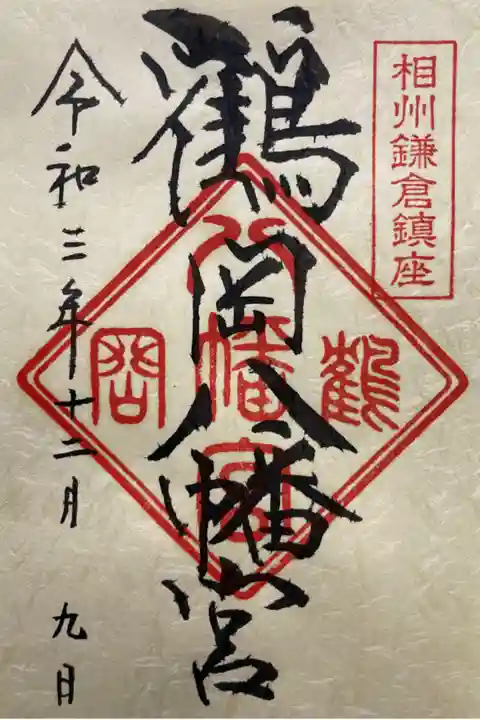 相州鎌倉鎮座
鶴岡八幡宮
鶴 八幡宮 岡
令和三年十二月 九日